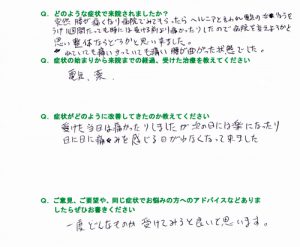 Q. どのような症状で来院されましたか?
突然 膝が痛くなり病院でみてもらったら ヘルニアともいわれ 電気の
うけ1週間たっても時には受ける前より痛かったりしたので病院を変えようかと
思い整体ならどうかと思い来ました。
ねていても痛い きっていても痛い 腰が曲がった状態でした。
Q. 症状の始まりから来院までの経過、受けた治療を教えてください
電気、薬、
Q. 症状がどのように改善してきたのか教えてください
受けた当日は痛かったりしましたが次の日には楽になったり
日に日に痛みを感じる日が少なくなって来ました
Q. ご意見、ご要望や、同じ症状でお悩みの方へのアドバイスなどありま
したらぜひお書きください
一度どんなものか受けてみると良いと思います。